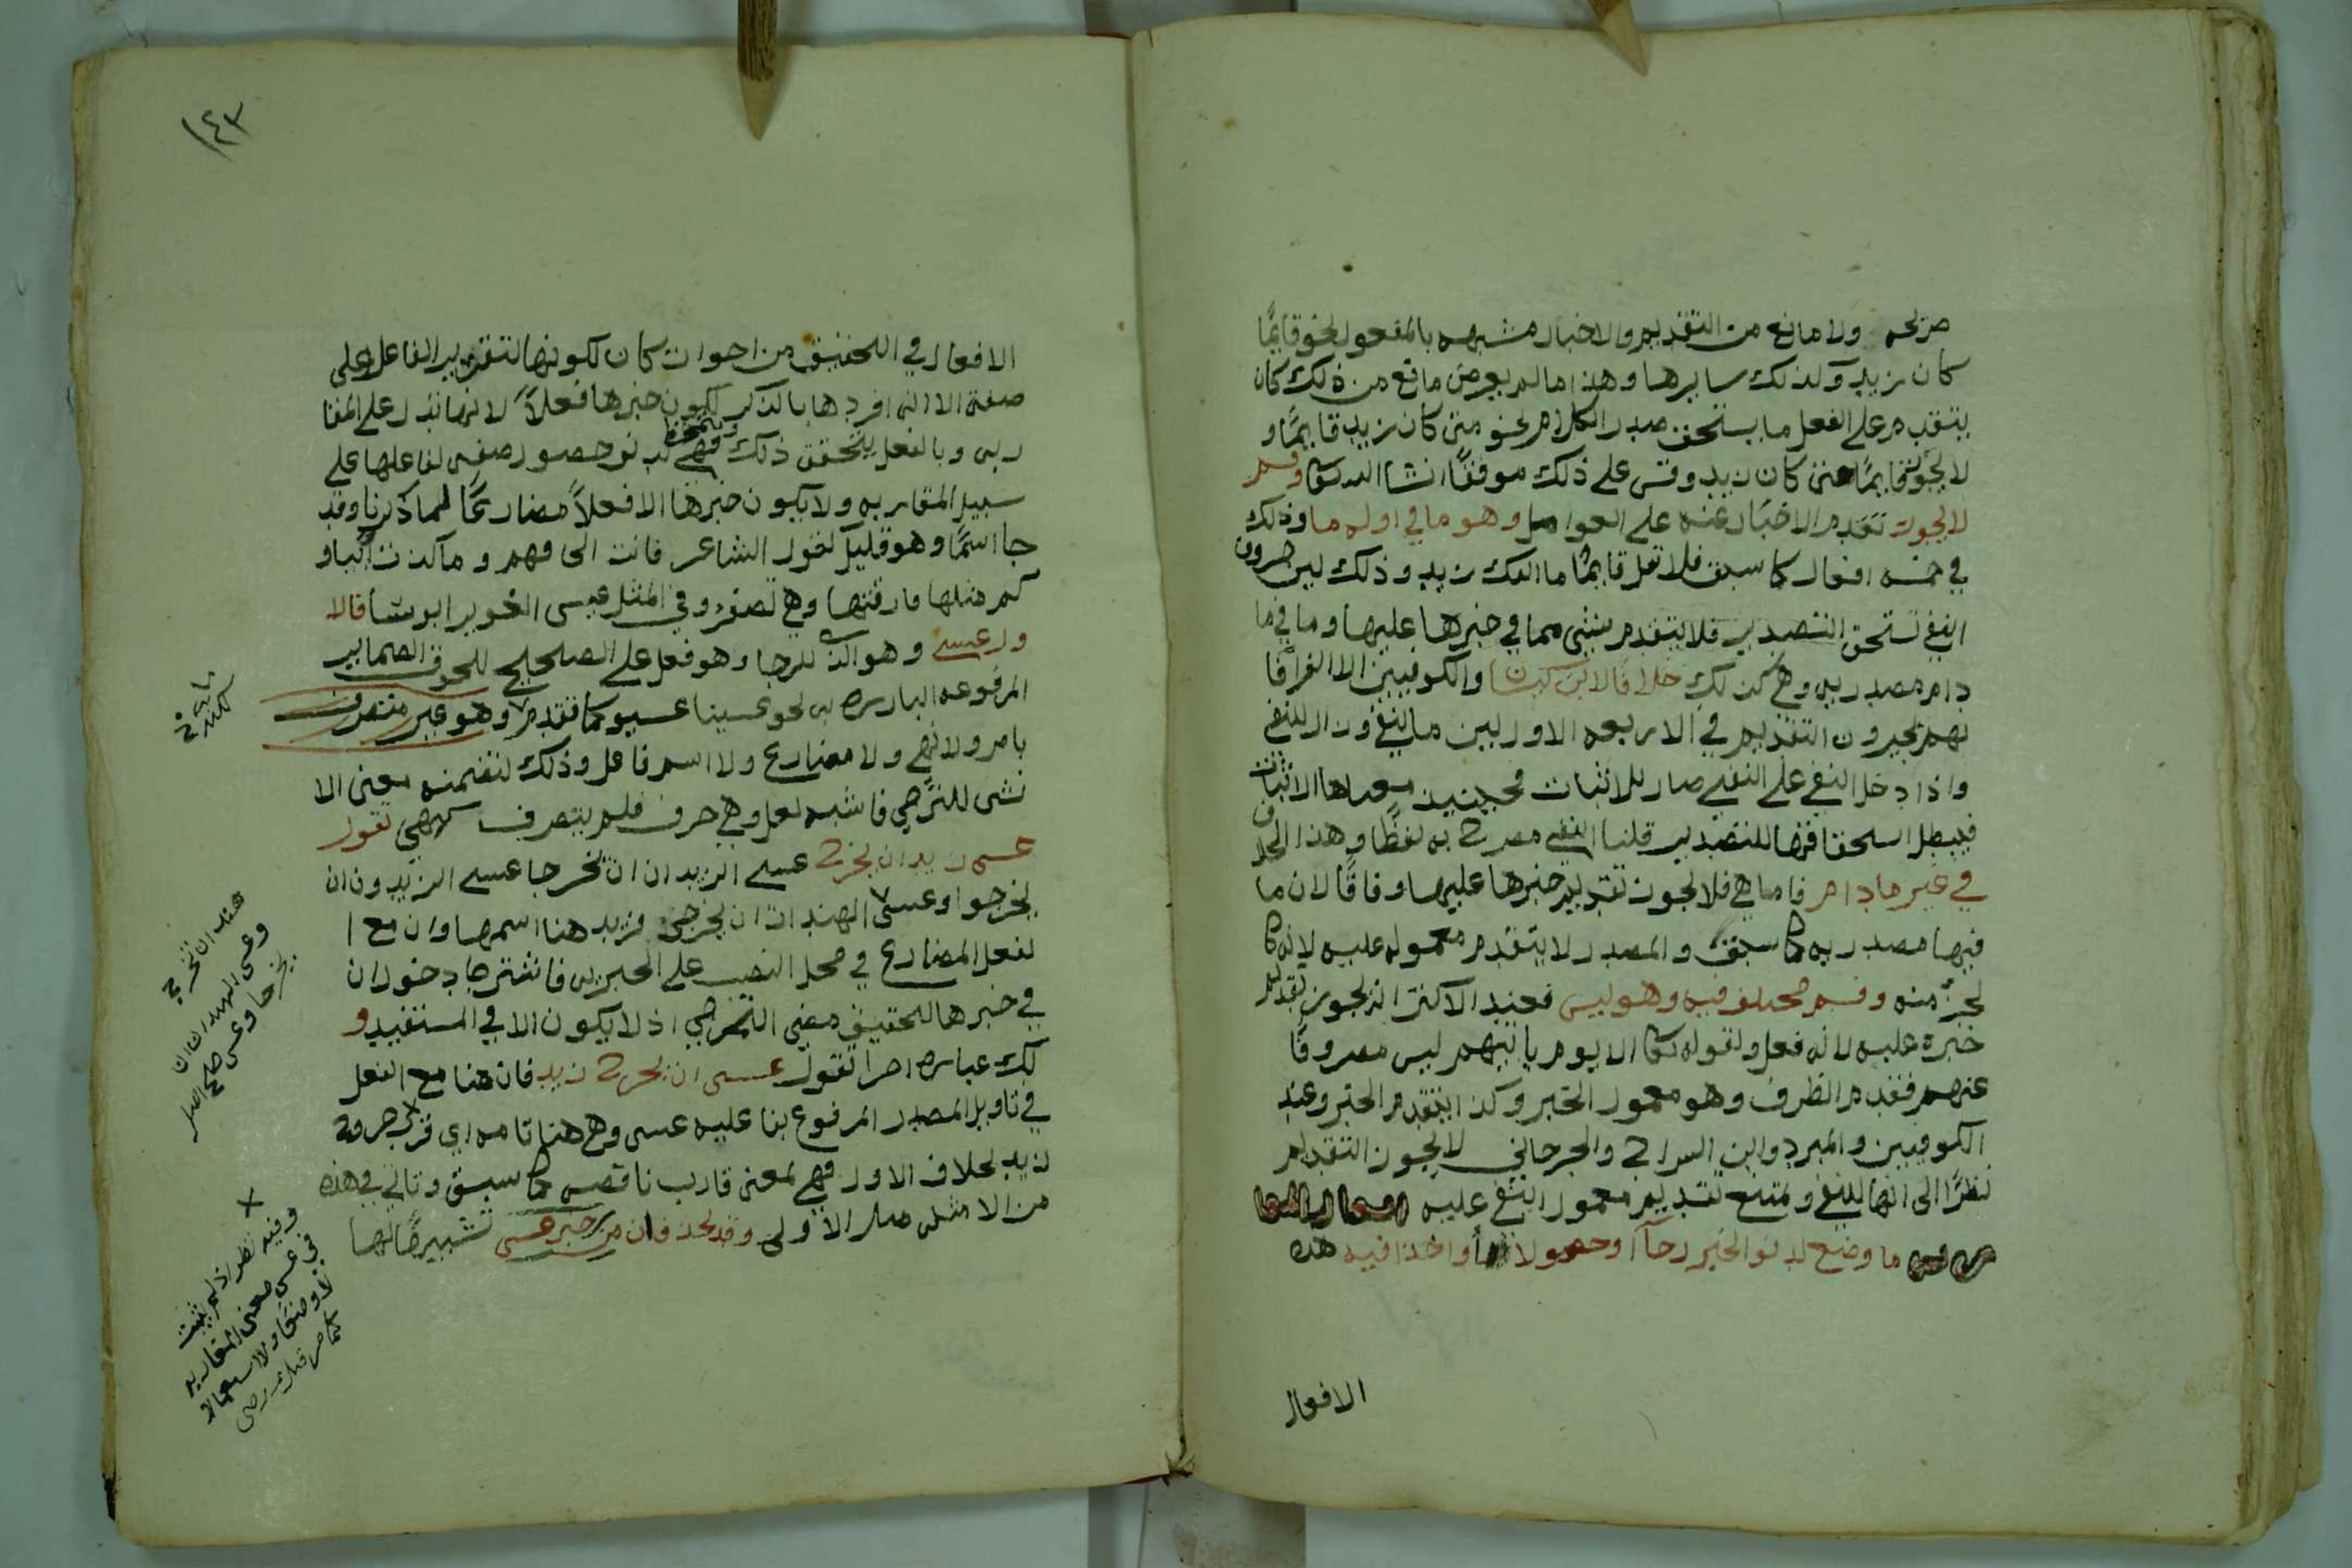 ولا مانع من التقديم والاخبار مشبهه بالمفعول نحو قايمًا
كان زيد وكذلك سايرها وهذا ما لم يعرض مانع من ذلك كان
يتقدم على الفعل ما يستحق صدر الكلام نحو متى كان زيد قايمًا و
لا يجوز قايمًا متى كان زيد وقس على ذلك موفقًا انشا الله تعالى وقسم
لا يجوز تقدم الاخبار عنه على العوامل وهو ما في اوله ما وذلك
في خمسه افعال كما سبق فلا تقل قايمًا ما انفك زيد وذلك لان حروف
النفي تستحق التصدير فلا يتقدم شي مما في خبرها عليها وما في ما
دام مصدريه وهي كذلك خلافًا لابن كيسان والكوفيين الا الفرا فا
نهم يجيزون التقديم في الاربعه الاول لان ما للنفي وزال للنفي
واذا دخل النفي على النفي صار للاثبات فحينيذ معناها الاثبات
فيبطل استحقاقها للتصدير قلنا النفي مصرح به لفظًا وهذا الخلاف
في غير ما دام فاما هي فلا يجوز تقديم خبرها عليها وفاقًا لان ما
فيها مصدريه كما سبق والمصدر لا يتقدم معموله عليه لانه كا
لجزء منه وقسم مختلف فيه وهو ليس فعند الاكثر انه يجوز تقديم
خبره عليه لانه فعل ولقوله تعالى الا يوم ياتيهم ليس مصروفًا
عنهم فقدم الظرف وهو معمول الخبر وكذا يتقدم الخبر وعند
الكوفيين والمبرد وابن السراج والجرجاني لا يجوز التقديم
نظرًا الى انها للنفي ويمتنع تقديم معمول النفي عليه
ما وضع لدنو الخبر رجآ او حصولا او اخذا فيه هذه
الافعال
١٤٣
الافعال في التحقيق من اخوات كان لكونها لتقرير الفاعل على
صفة الا انه افردها بالذكر لكون خبرها فعلًا لانها تدل على المقا
ربه وبالفعل يتحقق ذلك فهي لدنو حصول صفه لفاعلها على
سبيل المقاربه ولا يكون خبرها الا فعلًا مضارعًا لما ذكرنا وقد
جا اسمًا وهو قليل كقول الشاعر فابت الى فهم وما كدت آيبا و
كم مثلها فارقتها وهي تصفر وفي المثل عسى الغوير ابوسا فالا
ول عسى وهو الذي للرجا وهو فعل على الصحيح للحوق الضماير
المرفوعه البارزه به نحو عسينا عسيو كما تقدم وهو غير متصرف
بامر ولا نهي ولا مضارع ولا اسم فاعل وذلك لتضمنه معنى الا
نشى للترجي فاشبه لعل وهي حرف فلم يتصرف كهي تقول
عسى زيد ان يخرج عسى الزيدان ان يخرجا عسى الزيدون ان
يخرجوا وعسى الهندات ان يخرجن فزيد هنا اسمها وان مع ا
لفعل المضارع في محل النصب على الخبريه فاشترط دخول ان
في خبرها لتحقيق معنى الترجي اذ لا يكون الا في المستقبل و
لك عباره اخرا تقول عسى ان يخرج زيد فان هنا مع الفعل
في تاويل المصدر المرفوع بنا عليه عسى وهي هنا تامه اي قرب خروج
زيد بخلاف الاول فهي بمعنى قارب ناقصه كما سبق وتاتي في هذه
من الامثله مثل الاولى وقد يحذف ان من خبر عسى تشبيهًا لها
هند ان تخرج
وعسى الهندان ان
يخرجا وعسى
وفيه نظر اذ لم يثبت
في عسى معنى المقاربه
لا وضعًا ولا استعمالا